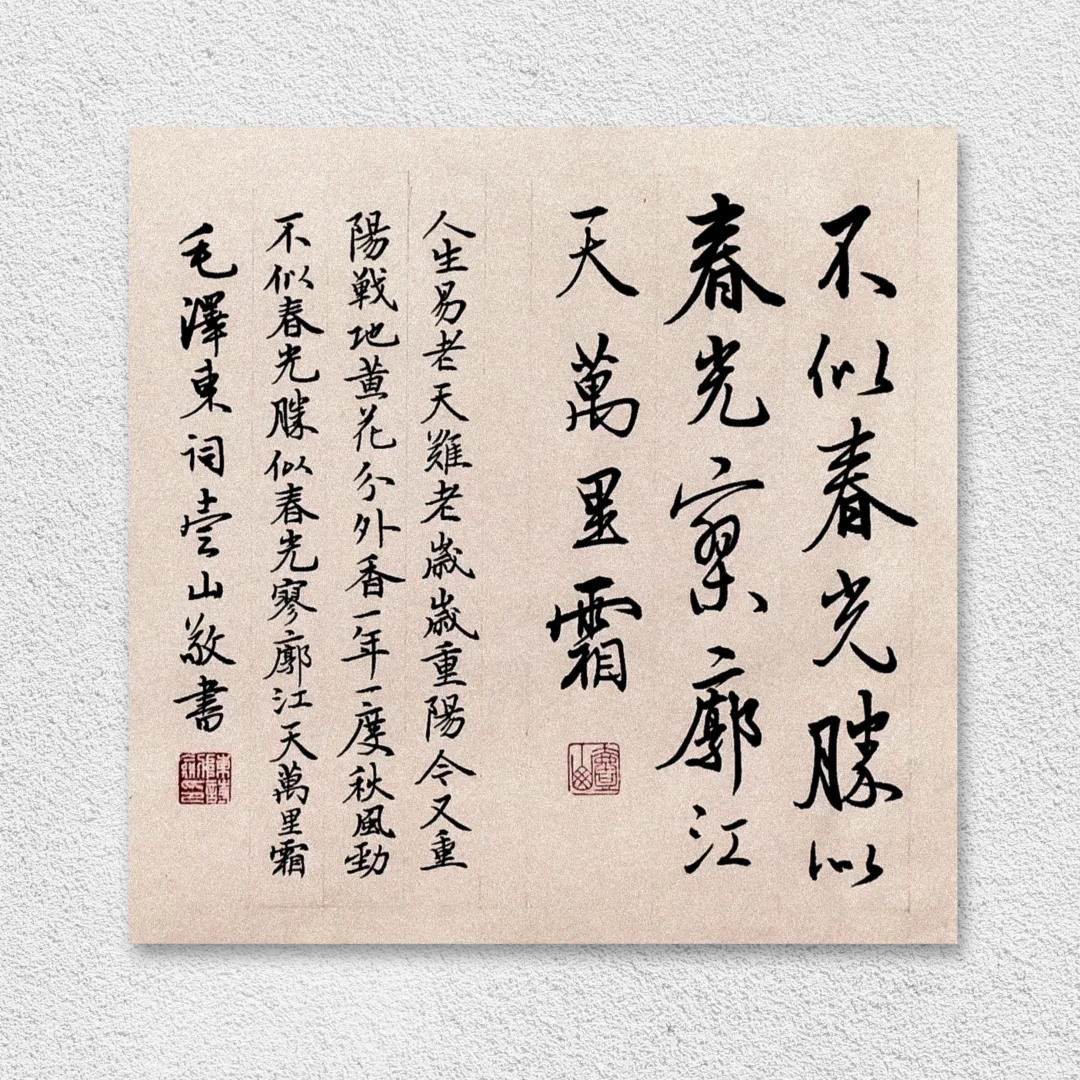 不似春光勝似
春光寥廓江
天萬里霜
人生易老天難老歲歲重陽今又重
陽戰地黄花分外香一年一度秋風勁
不似春光勝似春光寥廓江天萬里霜
毛澤東詞壹山敬書